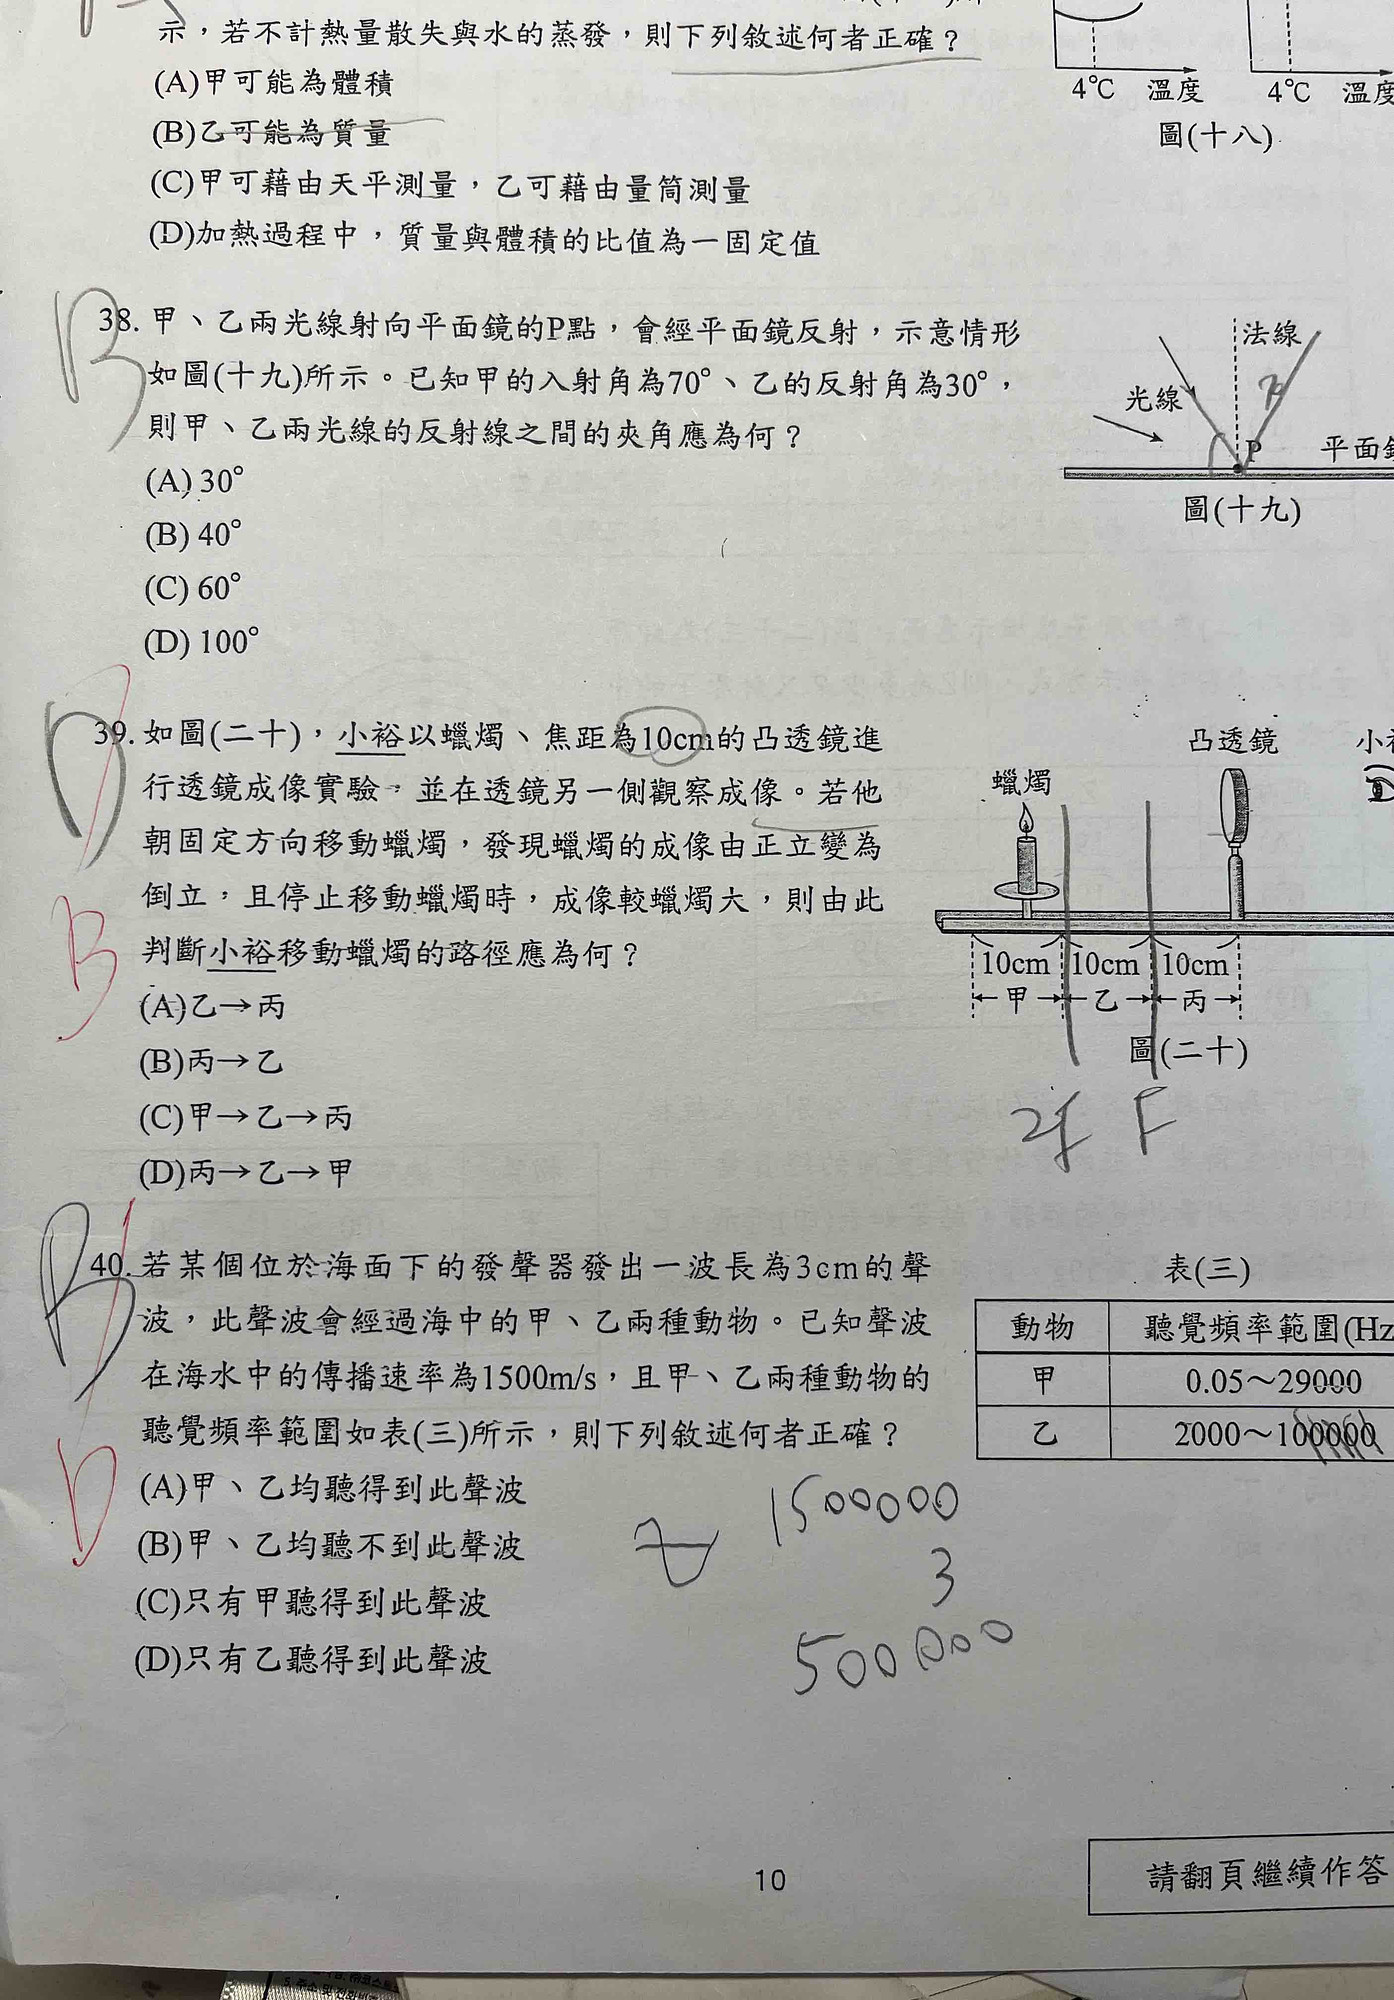 示，若不計熱量散失與水的蒸發，則下列敘述何者正確？
(A)甲可能為體積
(B)乙可能為質量
(C)甲可藉由天平測量，乙可藉由量筒測量
(D)加熱過程中，質量與體積的比值為一固定值
4℃ 溫度
4℃ 溫度
圖(十八)
B
38. 甲、乙兩光線射向平面鏡的P點，會經平面鏡反射，示意情形
如圖(十九)所示。已知甲的入射角為70°、乙的反射角為30°，
則甲、乙兩光線的反射線之間的夾角應為何？
(A) 30°
(B) 40°
(C) 60°
(D) 100°
法線
光線
P
平面鏡
圖(十九)
D
B
39. 如圖(二十)，小裕以蠟燭、焦距為10cm的凸透鏡進
行透鏡成像實驗，並在透鏡另一側觀察成像。若他
朝固定方向移動蠟燭，發現蠟燭的成像由正立變為
倒立，且停止移動蠟燭時，成像較蠟燭大，則由此
判斷小裕移動蠟燭的路徑應為何？
(A)乙→丙
(B)丙→乙
(C)甲→乙→丙
(D)丙→乙→甲
凸透鏡
小裕
蠟燭
10cm 10cm 10cm
甲 乙 丙
圖(二十)
2f F
B
D
40. 若某個位於海面下的發聲器發出一波長為3cm的聲
波，此聲波會經過海中的甲、乙兩種動物。已知聲波
在海水中的傳播速率為1500m/s，且甲、乙兩種動物的
聽覺頻率範圍如表(三)所示，則下列敘述何者正確？
(A)甲、乙均聽得到此聲波
(B)甲、乙均聽不到此聲波
(C)只有甲聽得到此聲波
(D)只有乙聽得到此聲波
表(三)
動物 聽覺頻率範圍(Hz
甲 0.05～29000
乙 2000～100000
1500000
3
500000
10
請翻頁繼續作答